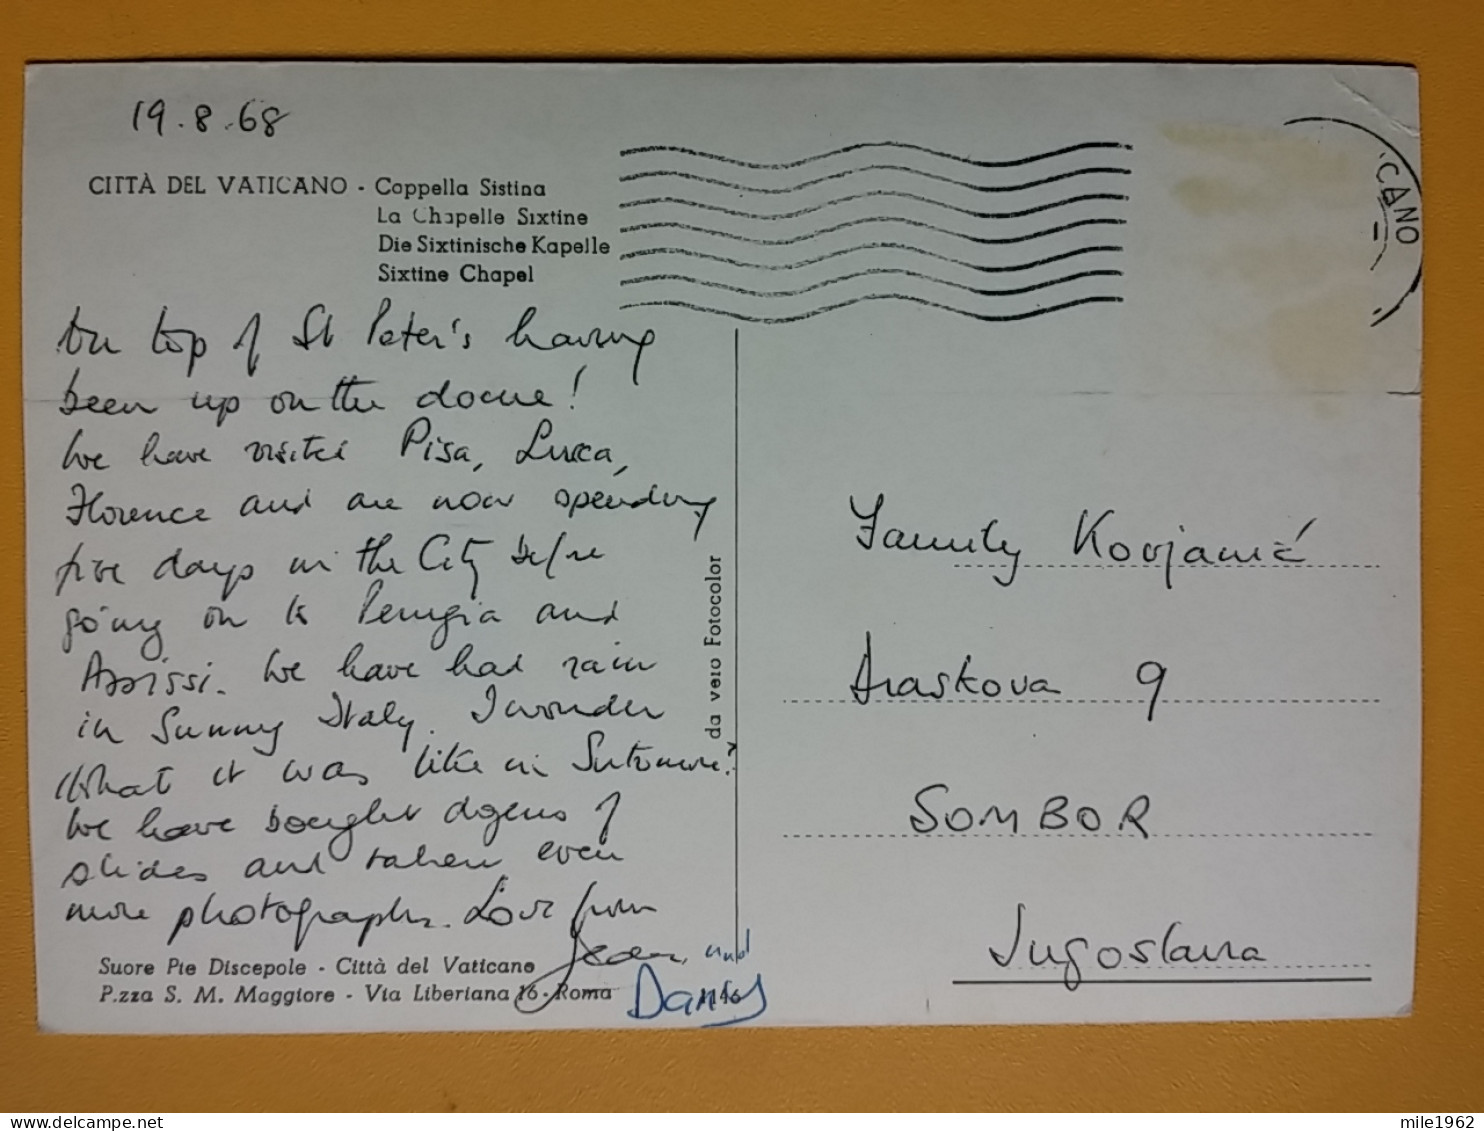 19.8.68
CITTÀ DEL VATICANO - Cappella Sistina
La Chapelle Sixtine
Die Sixtinische Kapelle
Sixtine Chapel
CANO
On top of St Peter's having
been up on the dome!
We have visited Pisa, Lucca,
Florence and are now spending
five days in the City before
going on to Perugia and
Assissi. We have had rain
in Sunny Italy. I wonder
what it was like in Sutomore?
We have bought dozens of
slides and taken even
more photographs. Love from
Jean, and
Danny
da vero Fotocolor
Suore Pie Discepole - Città del Vaticano
P.zza S. M. Maggiore - Via Liberiana 16 - Roma
Family Kovjanić
Draskova 9
SOMBOR
Jugoslavia
mile1962